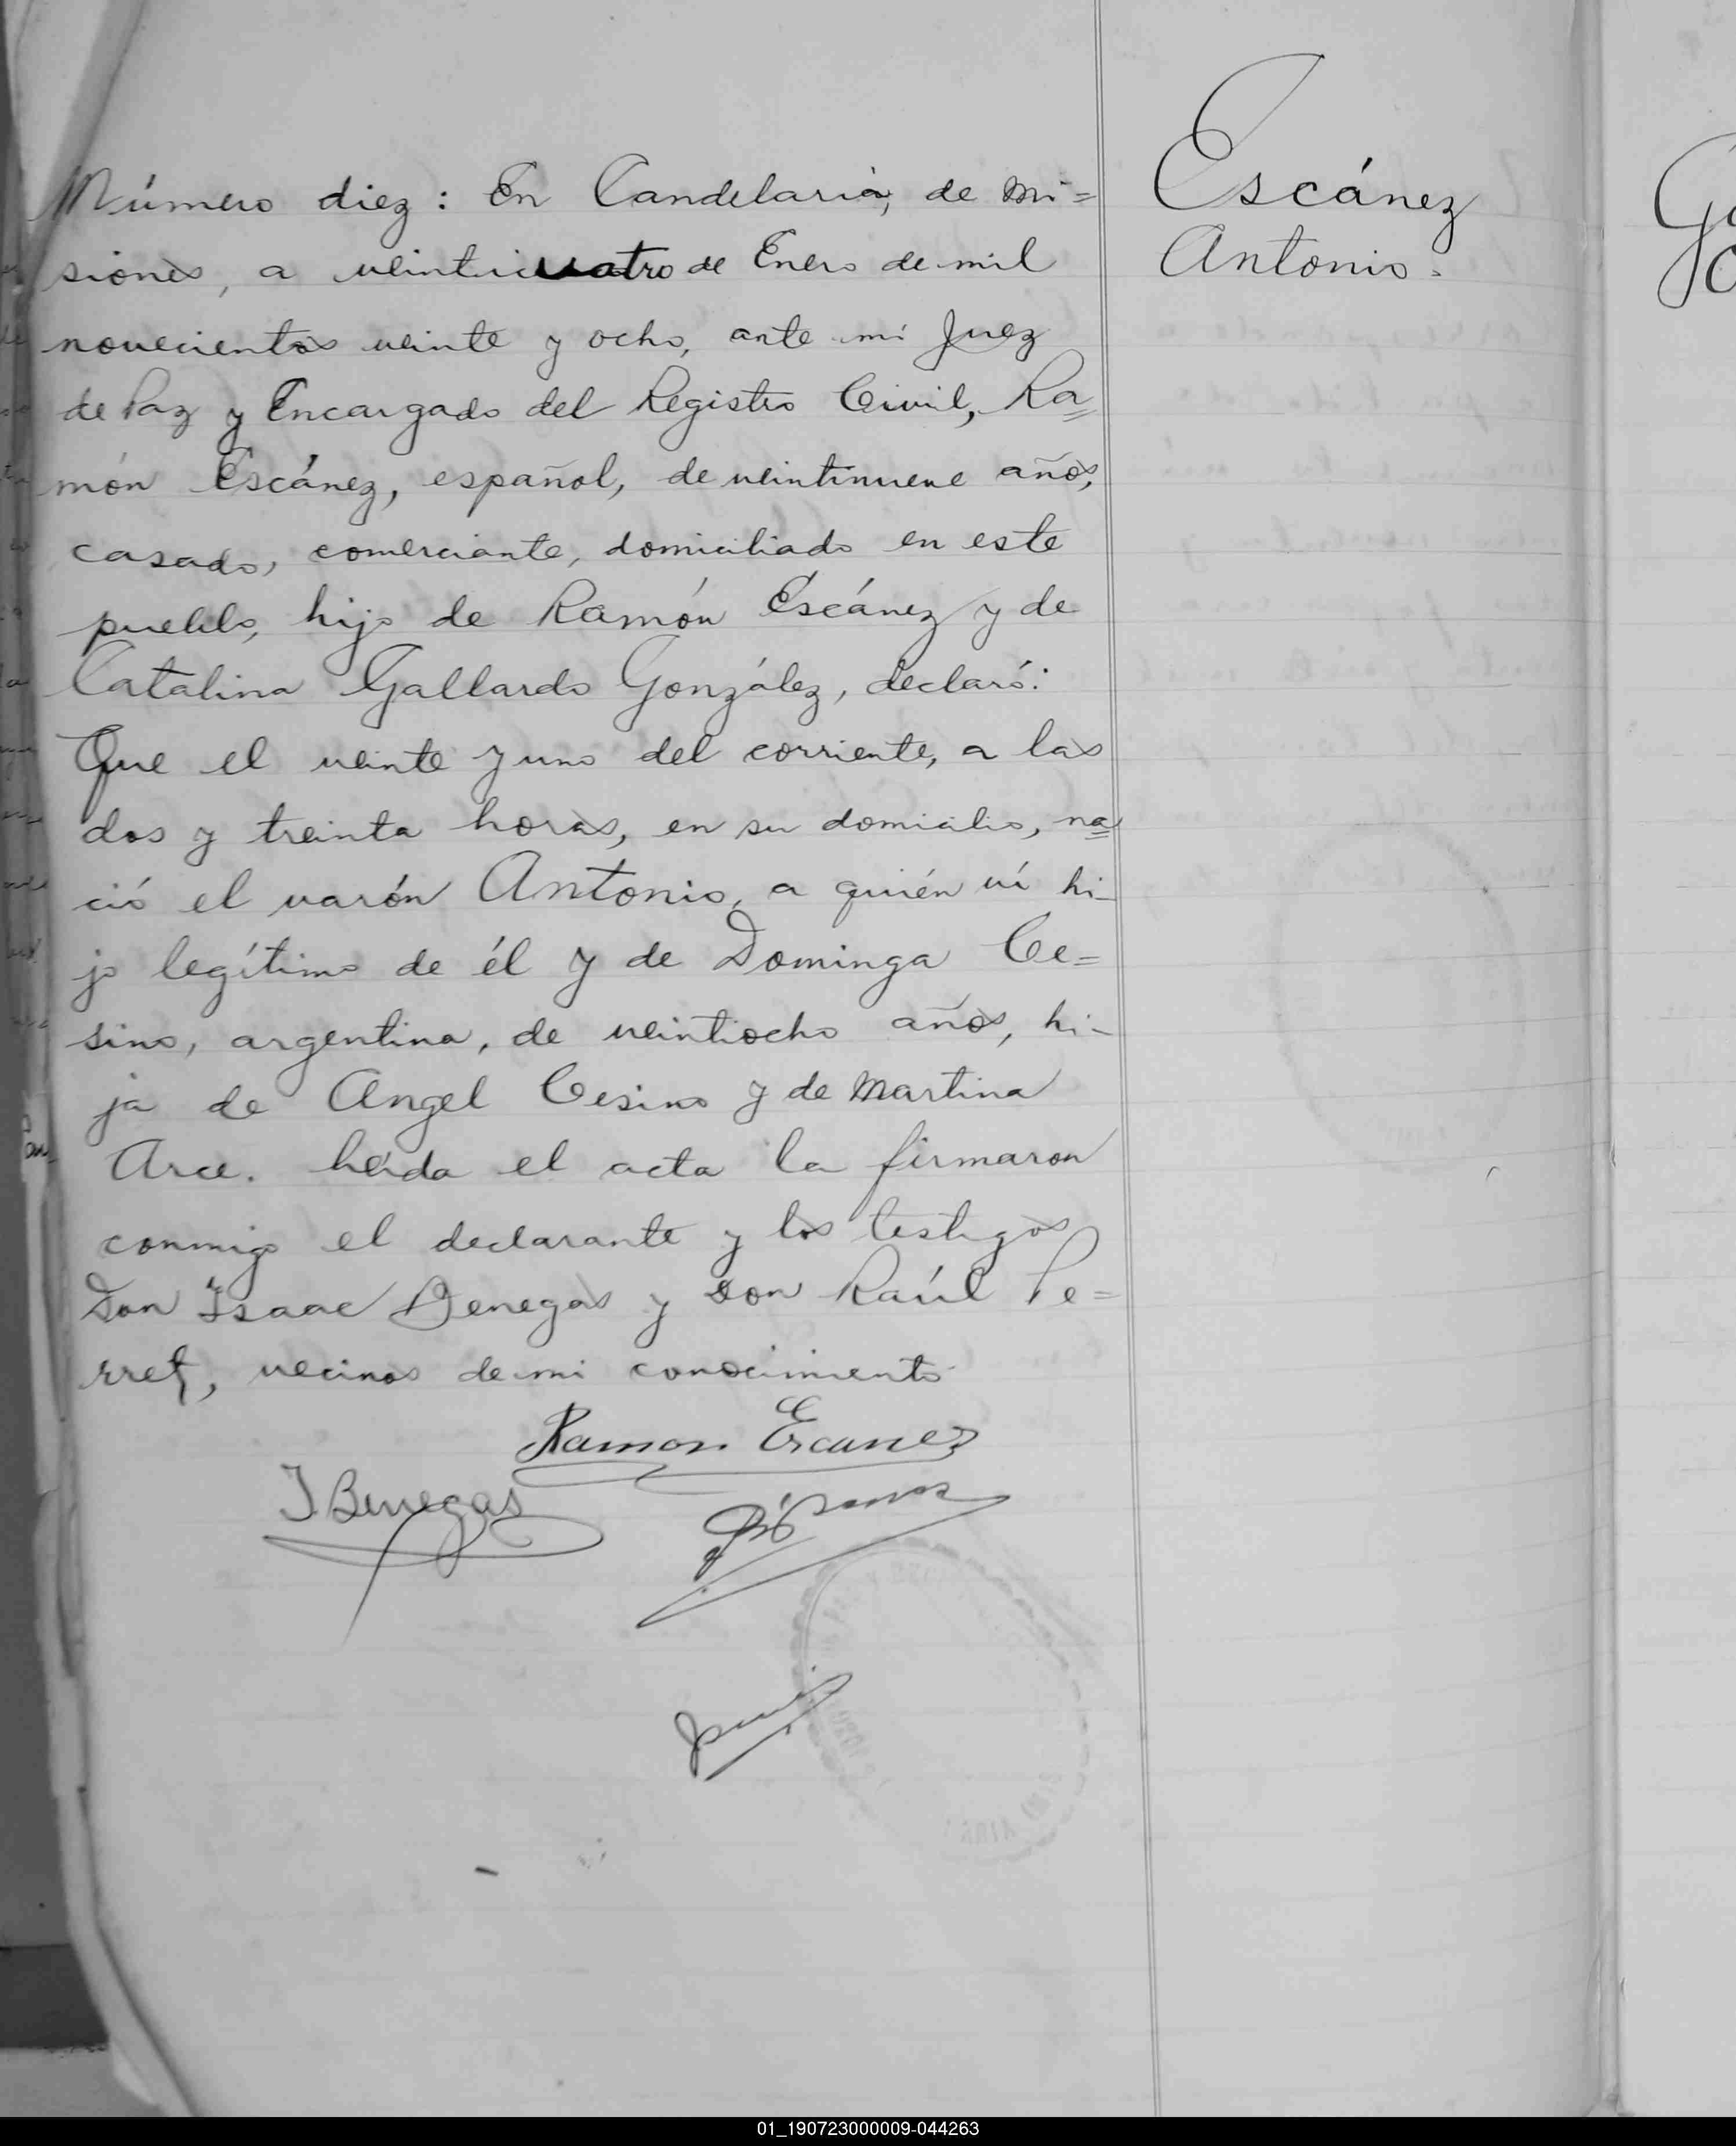 Número diez: En Candelaria, de Mi=
siones, a veinticuatro de Enero de mil
novecientos veinte y ocho, ante mi Juez
de Paz y Encargado del Registro Civil, Ra=
món Escánez, español, de veintinueve años,
casado, comerciante, domiciliado en este
pueblo, hijo de Ramón Escánez y de
Catalina Gallardo González, declaró:
Que el veinte y uno del corriente, a las
dos y treinta horas, en su domicilio, na=
ció el varón Antonio, a quién ví hi-
jo legítimo de él y de Dominga Ce=
sino, argentina, de veintiocho años, hi-
ja de Angel Cesino y de Martina
Arce. Leída el acta la firmaron
conmigo el declarante y los testigos
Don Isaac Benegas y Don Raúl Pe=
rret, vecinos de mi conocimiento.
Ramon Escanez
I Benegas
Escánez
Antonio.
01_190723000009-044263